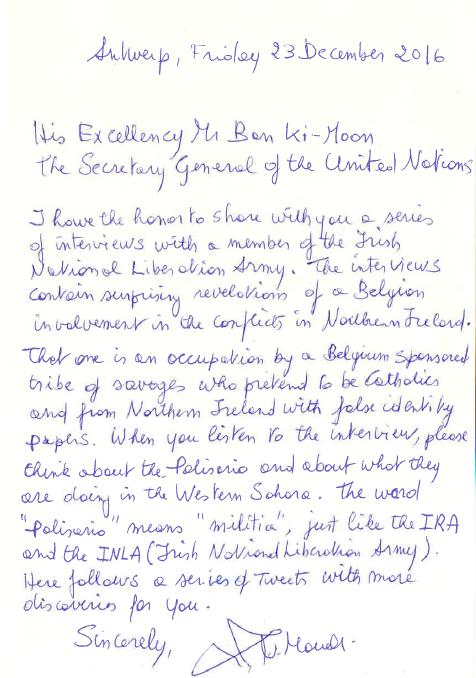 Antwerp, Friday 23 December 2016
His Excellency Mr Ban Ki-Moon
The Secretary General of the United Nations
I have the honor to share with you a series
of interviews with a member of the Irish
National Liberation Army. The interviews
contain surprising revelations of a Belgian
involvement in the conflicts in Northern Ireland.
That one is an occupation by a Belgium sponsored
tribe of savages who pretend to be Catholics
and from Northern Ireland with false identity
papers. When you listen to the interview, please
think about the Polisario and about what they
are doing in the Western Sahara. The word
"Polisario" means "militia", just like the IRA
and the INLA (Irish National Liberation Army).
Here follows a series of Tweets with more
discoveries for you.
Sincerely,